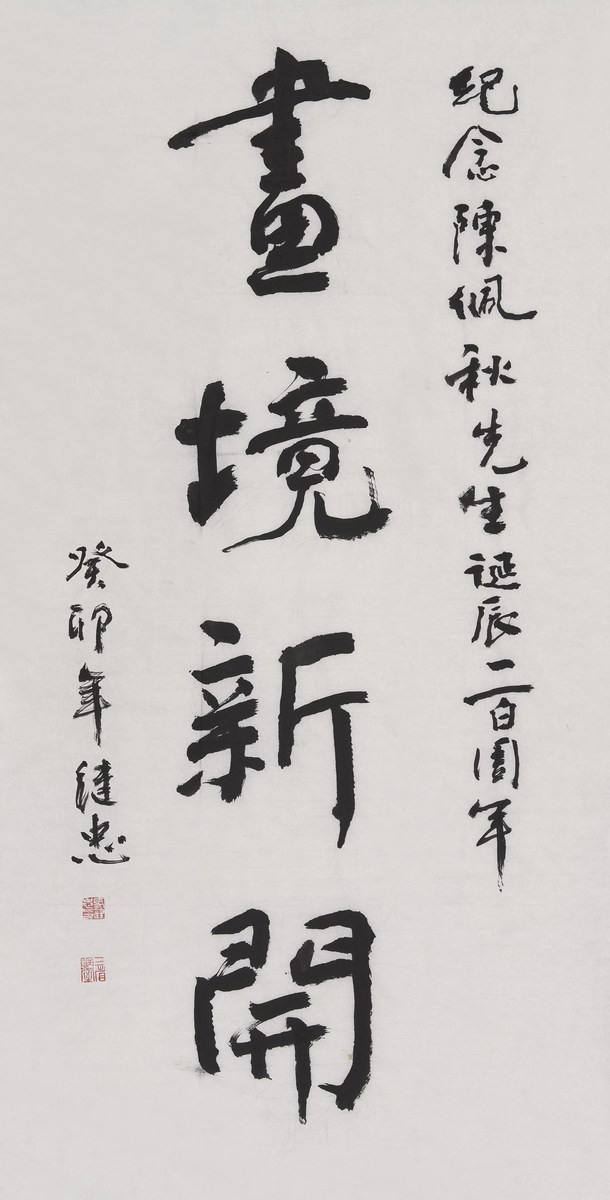 紀念陳佩秋先生誕辰一百周年
畫境新開
癸卯年継忠